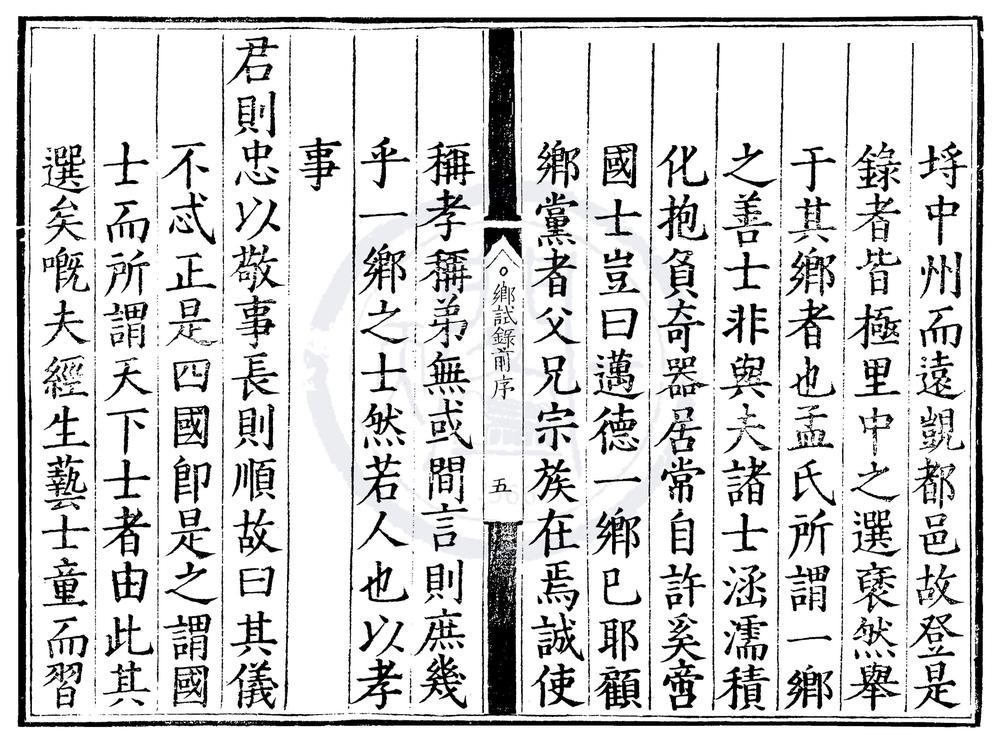 埒中州而遠覬都邑故登是
錄者皆極里中之選褎然舉
于其鄉者也孟氏所謂一鄉
之善士非與夫諸士涵濡積
化抱負奇器居常自許奚啻
國士豈曰邁德一鄉已耶顧
鄉黨者父兄宗族在焉誠使
鄉試錄前序
五
稱孝稱弟無或間言則庶幾
乎一鄉之士然若人也以孝
事
君則忠以敬事長則順故曰其儀
不忒正是四國卽是之謂國
士而所謂天下士者由此其
選矣嘅夫經生藝士童而習